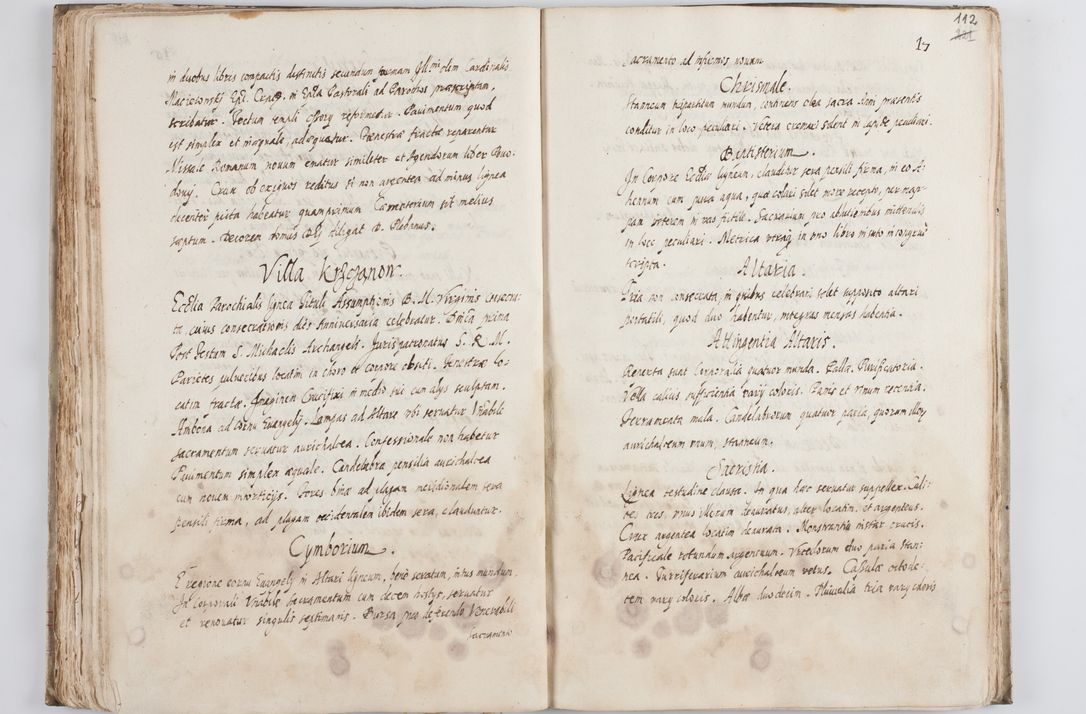 in duobus libris compactis distinctis secundum formam Illmi olim Cardinalis
Macieiowskj Epī. Crac. in Epla Pastorali ad Parochos præscriptam,
scribatur. Tectum templi reformetur. Pauimentum quod
est simplex et inæquale, adæquatur. Fenestræ fractæ reparentur
Missale Romanum nouum ematur similiter et Agendorum liber
Crux ob exiguos reditus si non argentea ad minus lignea
decenter picta habeatur quamprimum Cæmeterium sit melius
septum. Decorem domus Dei diligat D. Plebanus.
Villa
Ecclia Parochialis lignea tituli Assumptionis B. M. Virginis consecra:
ta, cuius consecrationis dies Anniuersaria celebratur Dnica prima
Post festum S. Michaelis Archangeli. Jurispatronatus S. R. M.
Parietes pulueribus locatim in choro et corpore obsiti. Fenestræ lo:
catim fractæ. Imaginem Crucifixi in medio sui cum alijs sculptam.
Ambona ad Cornu Euangelij. Lampas ad Altare vbi seruatur Vrabile
sacramentum seruatur aurichalcea. Confessionale non habetur
Pauimentum simplex æquale. Candelabra pensilia aurichalcea
cum nouem Fores binæ ad plagam meridionalem sera
pensili firma, ad plagam occidentalem ibidem sera, clauduntur.
Cymborium.
E regione cornu Euangelij in Altari ligneum, bene seratum, intus mundum
In corporali Vrabile sacramentum cum decem hostijs, seruatur
et renouatur singulis septimanis. Bursa pro deferendo Venerabili
sacramento
112
221
15
sacramento ad infirmos nouam
Chrismale.
Stanneum tripartitum mundum, continens olea sacra Anni præsentis
conditur in loco peculiari. Vetera cremari solent in peculiari.
Baptisterium.
In Corpore Eccliæ ligneum, clauditur sera pensili firma, in eo A:
henum cum pura aqua, quæ colari solet more recepto, per map:
pam in vas fictile. Sacrarium pro ablutionibus mittendis
in loco peculiari. Metrica vtraq in vno libro
scripta.
Altaria.
Tria non consecrata, in quibus celebrari solet supposito altari
portatili, quod duo habentur, integras mensas habentia.
Attingentia Altaris.
Reperta sunt Corporalia quatuor munda. Pallæ. Purificatoria.
Vella calicis sufficientia varij coloris. Panis et vinum recentia.
mala. Candelabrorum quatuor paria, quorum illoru
aurichalceum vnum, stanneum.
Sacristia.
Lignea testudine clausa. In qua hæc seruatur suppellex. Cali:
ces tres, vnus illorum deauratus, alter locatim, et argenteus.
Crux argentea locatim deaurata. Monstrantia instar crucis.
Pacificale rotundum argenteum. Vrceolorum duo paria stan:
nea. Turriferarium aurichalceum vetus. Casulæ octode:
cem varij coloris. Albæ duodecim. Pluuialia tria varij coloris